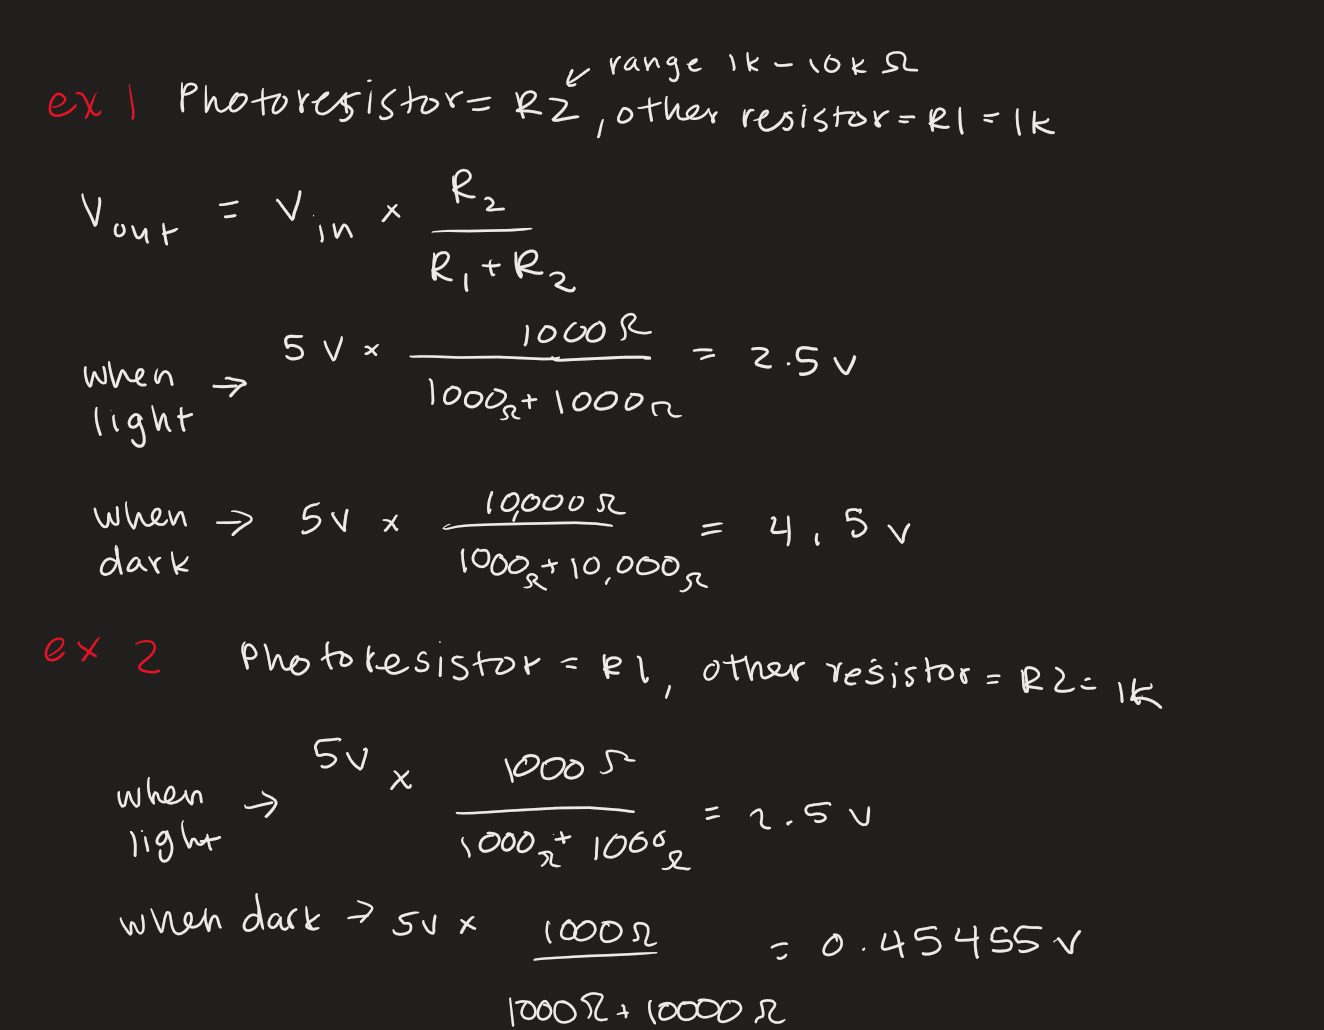 range 1k - 10k Ω
ex 1 Photoresistor = R2, other resistor = R1 = 1k
Vout = Vin × R2 / R1 + R2
when light → 5 V × 1000 Ω / 1000Ω + 1000Ω = 2.5 v
when dark → 5V × 10,000 Ω / 1000Ω + 10,000Ω = 4.5 v
ex 2 Photoresistor = R1, other resistor = R2 = 1k
when light → 5v × 1000 Ω / 1000Ω + 1000Ω = 2.5 v
when dark → 5v × 1000Ω / 1000Ω + 10000 Ω = 0.45455 v